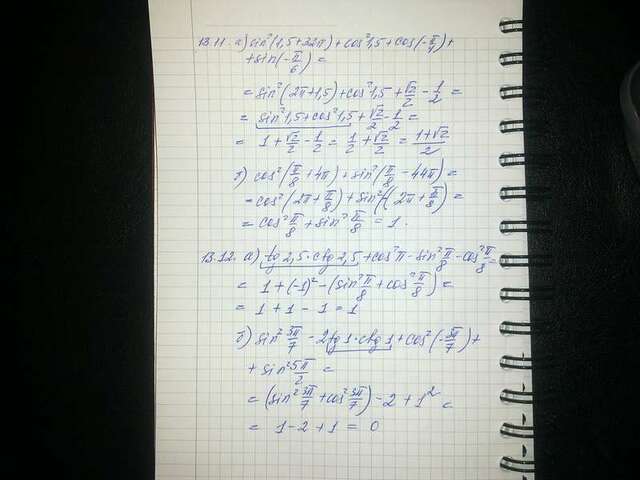 13.11. а) sin²(1,5+32π) + cos²1,5 + cos(-π/4) +
+ sin(-π/6) =
= sin²(2π+1,5) + cos²1,5 + √2/2 - 1/2 =
= sin²1,5 + cos²1,5 + √2/2 - 1/2 =
= 1 + √2/2 - 1/2 = 1/2 + √2/2 = (1+√2)/2
б) cos²(π/8 + 4π) + sin²(π/8 - 44π) =
= cos²(2π + π/8) + sin²(-(2π + π/8) =
= cos²π/8 + sin²π/8 = 1.
13.12. а) tg 2,5 · ctg 2,5 + cos²π - sin²π/8 - cos²π/8 =
= 1 + (-1)² - (sin²π/8 + cos²π/8) =
= 1 + 1 - 1 = 1
б) sin² 3π/7 - 2tg 1 · ctg 1 + cos²(-3π/7) +
+ sin² 5π/2 =
= (sin² 3π/7 + cos² 3π/7) - 2 + 1² =
= 1 - 2 + 1 = 0